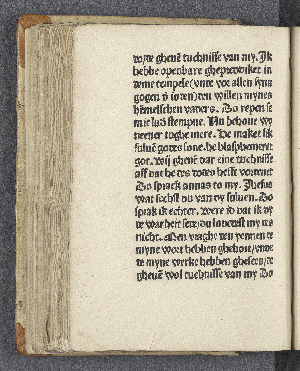 vnde gheuē tuchnisse van my. Ik
hebbe openbare ghepredeket in
deme tempele (vnde vor allen sina
gogen d̄ ioden) den willen mynes
hēmelschen vaders. Do repen se
mit lud stempne. Nu behoue wy
neener tughe mere. He maket sik
suluē godes sone. he blasphemeret
got. Wij gheuē dar eine tuchnisse
aff dat he des dodes hefft vordenet
Do sprack annas to my. Ihesus
wat sechst du van dy suluen. Do
sprak ik echter. Were id dat ik dy
de warheit sede / du louedest my des
nicht. Men vraghe den yennen de
myne wort hebben ghehort / vnde
de myne werke hebben gheseen / de
gheuē wol tuchnisse van my Do